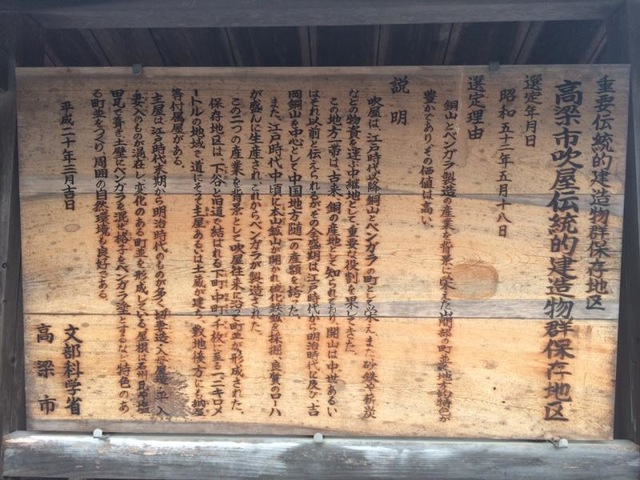 重要伝統的建造物群保存地区
高梁市吹屋伝統的建造物群保存地区
選定年月日
昭和五十二年五月十八日
選定理由
銅山とベンガラ製造の産業を背景に栄えた山間部の町並で地方的特色が
豊かであり、その価値は高い。
説明
吹屋は、江戸時代以降、銅山とベンガラの町として栄え、また、砂鉄や薪炭
などの物資を運ぶ中継地として重要な役割を果してきた。
この地方一帯は古来、銅の産地として知られており、開山は中世あるい
はそれ以前と伝えられるが、その全盛期は江戸時代から明治時代に及び、吉
岡銅山を中心として中国地方随一の産額を誇った。
また、江戸時代中頃に本山鉱山が開かれ、硫化鉄鉱を採掘、良質のローハ
が盛んに生産され、これからベンガラが製造された。
この二つの産業を背景として吹屋往来に沿う町並が形成された。
保存地区は、下谷と旧道で結ばれる下町・中町・千枚に至る一・二キロメ
ートルの地域で、道にそって主屋あるいは土蔵が建ち、敷地後方にも納屋
等付属屋がある。
主屋は江戸時代末期から明治時代のものが多く、切妻造、入母屋造で、平入
妻入のものが混在し、変化のある町並を形成している。屋根は石州瓦や塩
田瓦で葺き、土壁にベンガラを混ぜ、格子をベンガラ塗とするなど、特色のあ
る町並をつくり、周囲の自然環境も良好である。
平成二十年三月吉日
文部科学省
高梁市